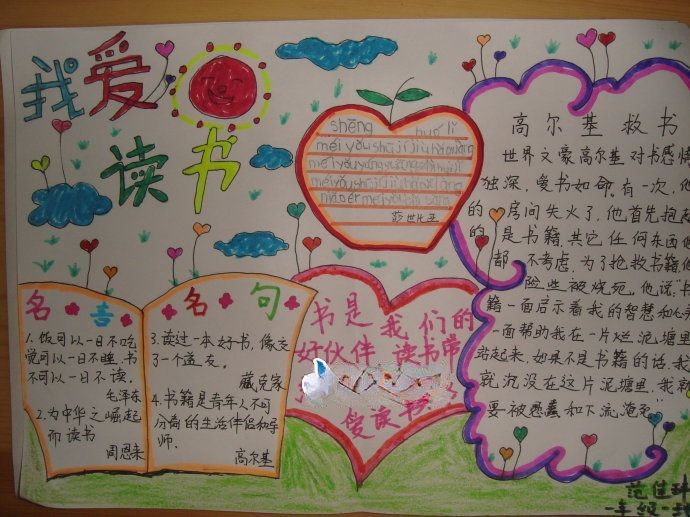 我爱
读书
shēng huó lǐ
méi yǒu
莎世比亚
名言名句
1、饭可以一日不吃
觉可以一日不睡，书
不可以一日不读。
毛泽东
2、为中华之崛起
而读书
周恩来
3、读过一本好书，像交
了一个益友。
臧克家
4、书籍是青年人不可
分离的生活伴侣和导
师。
高尔基
书是我们的
好伙伴 读书带
爱读书
高尔基救书
世界文豪高尔基对书感情
独深，爱书如命，有一次，他
的房间失火了，他首先抱起
的是书籍，其它任何东西他
都不考虑，为了抢救书籍他
险些被烧死，他说“书
籍一面启示着我的智慧和心灵
一面帮助我在一片烂泥塘里
站起来，如果不是书籍的话，我
就沉没在这片泥塘里，我就
要被愚蠢和下流淹死”
范佳
一年级一班